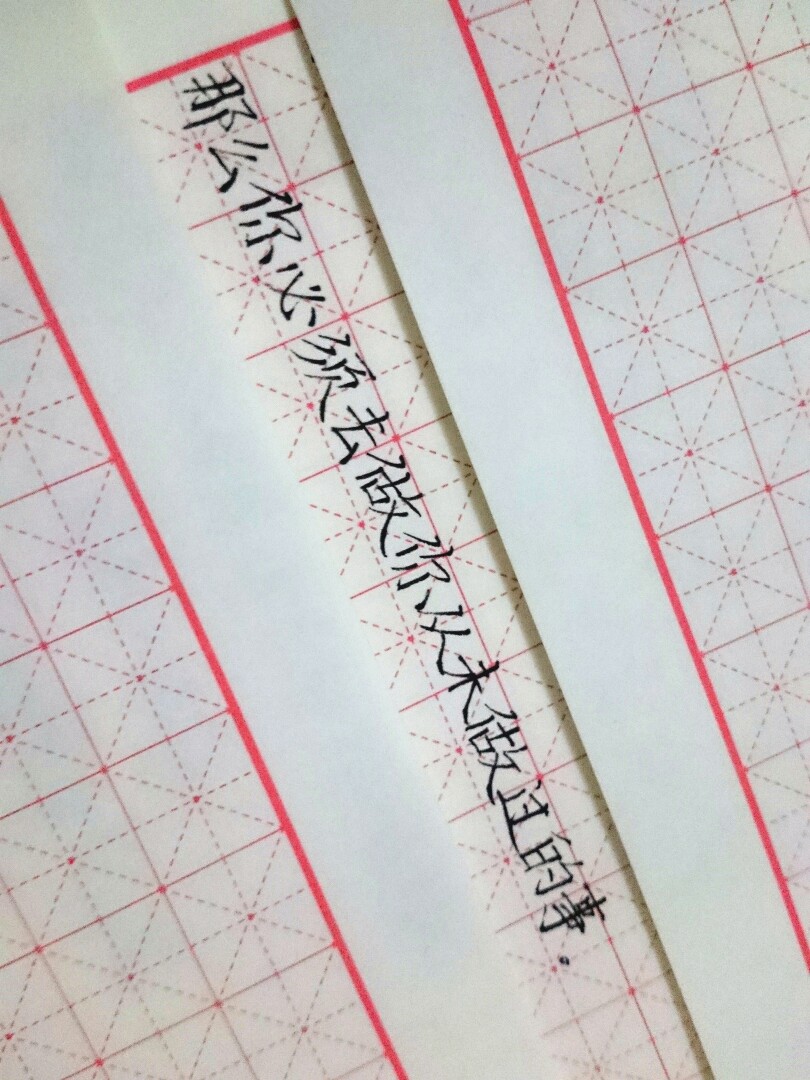 那么你必须去做你从未做过的事。